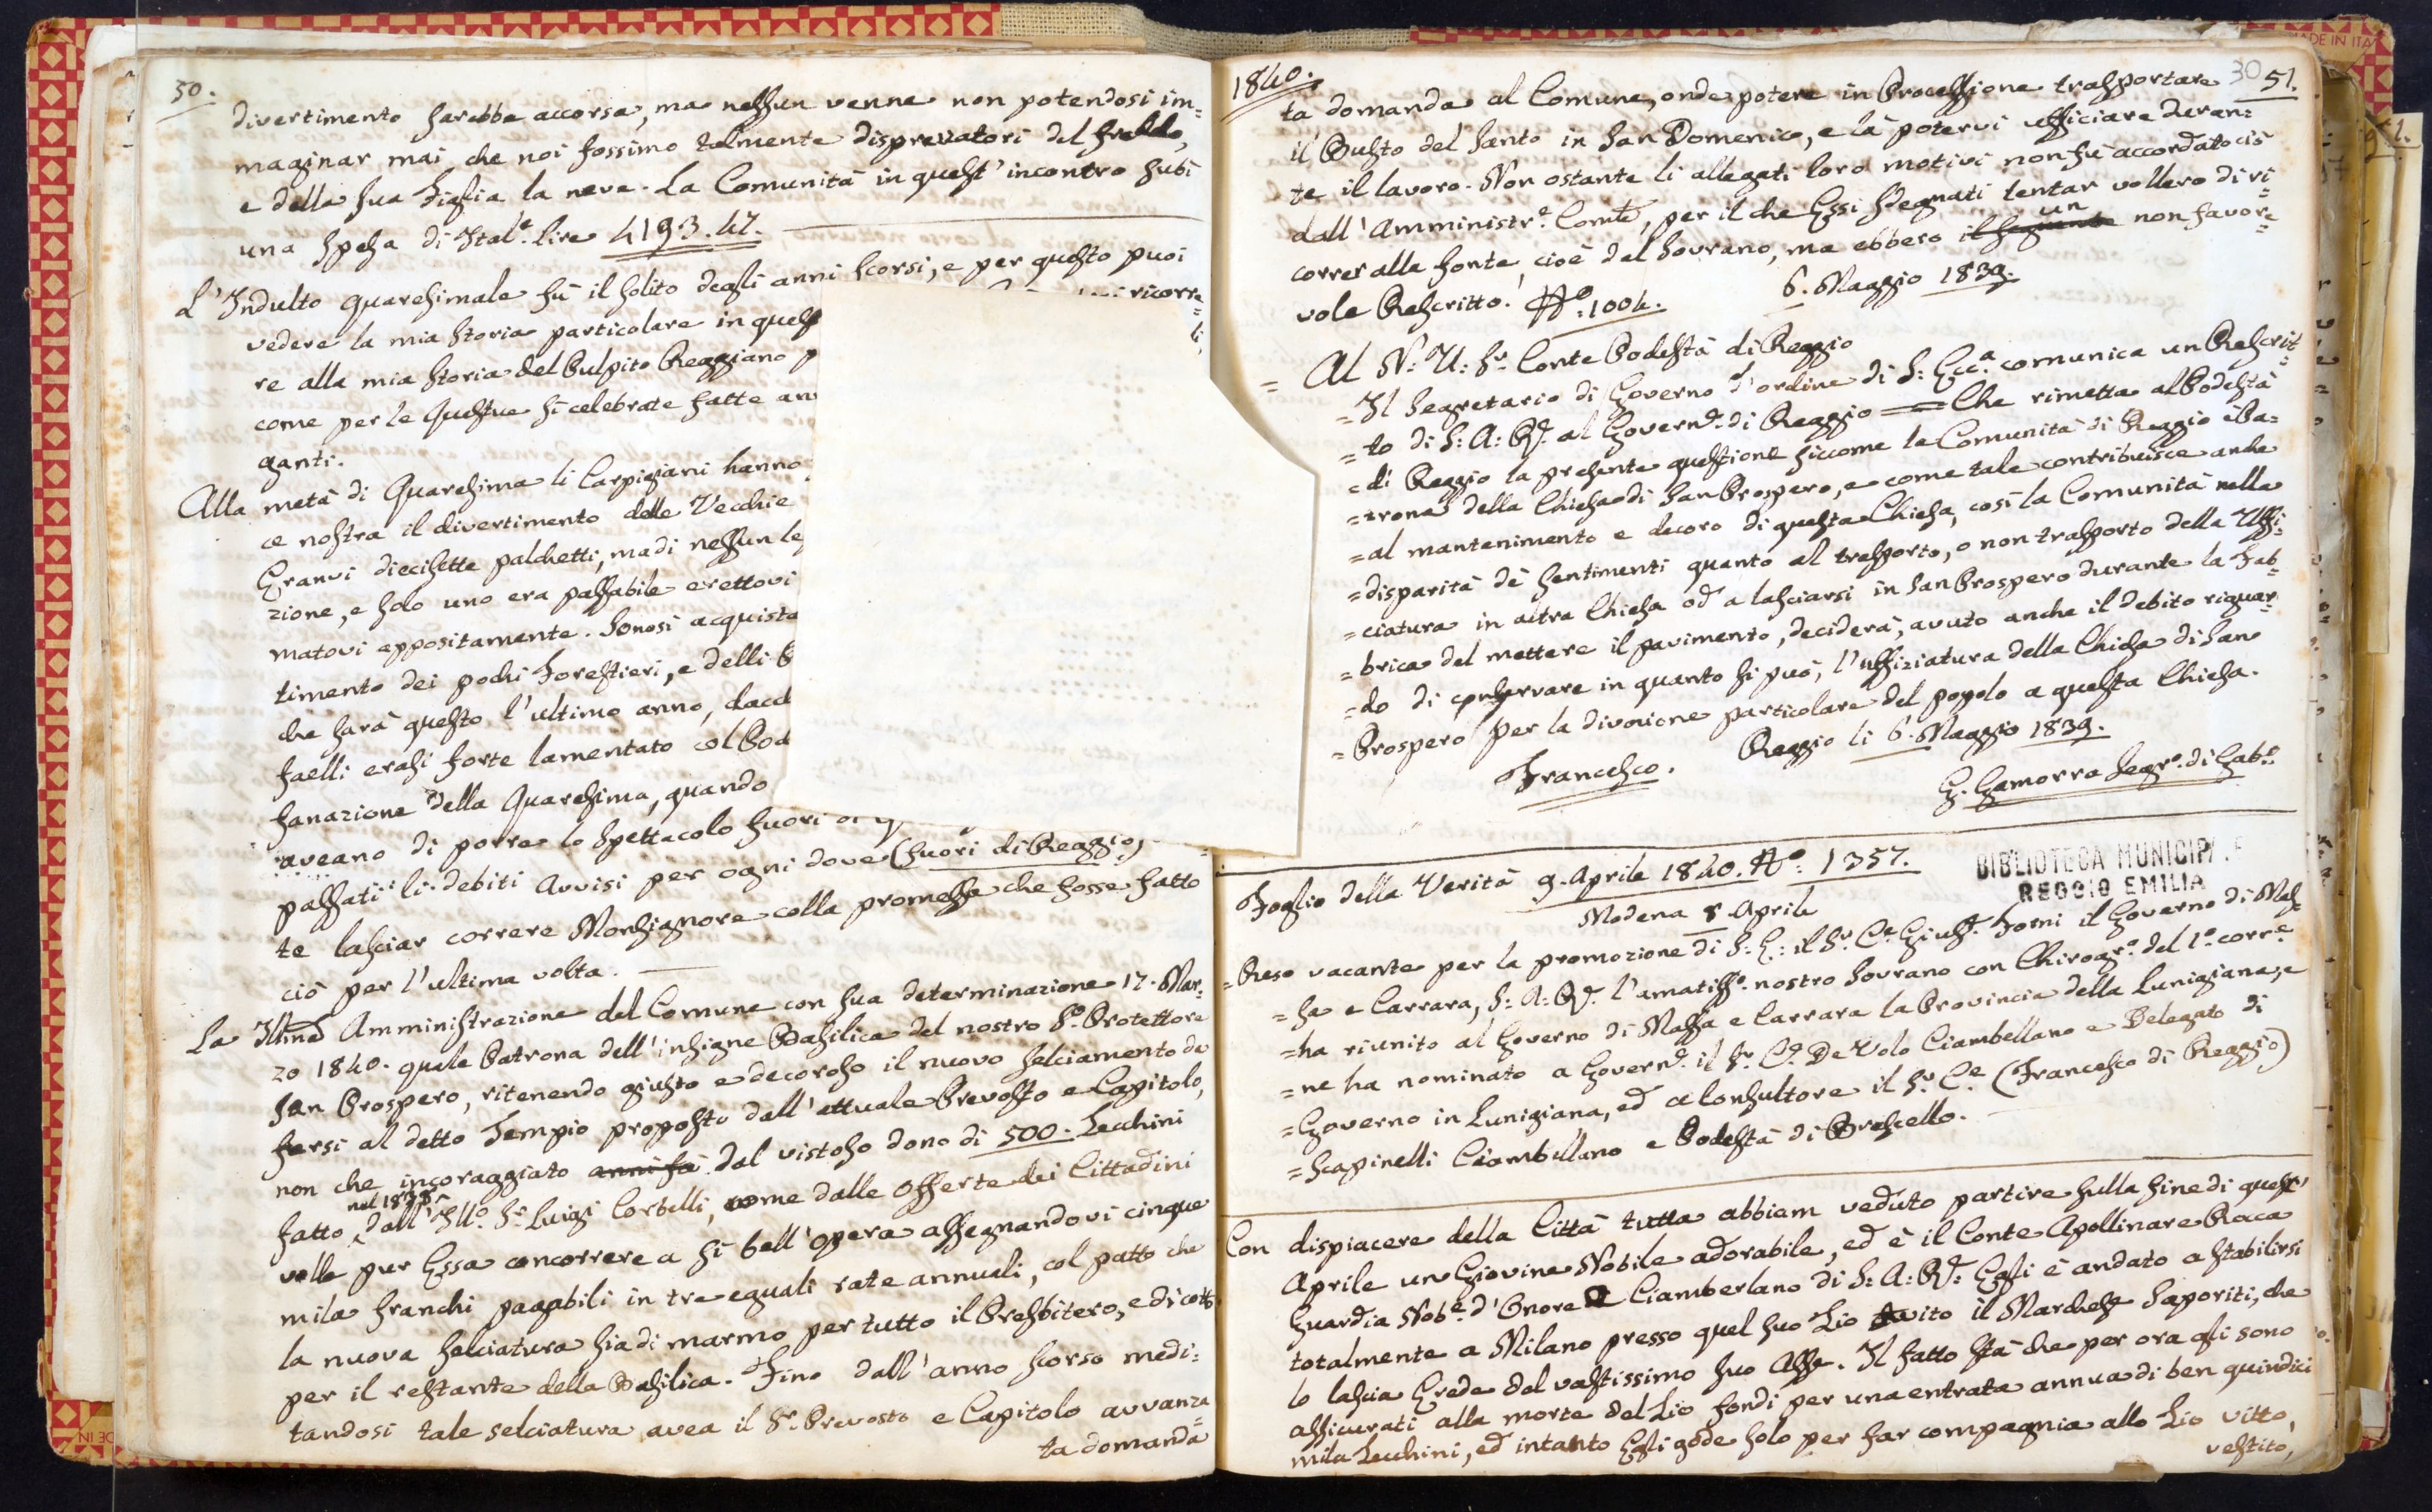 50.
divertimento sarebbe accorsa, ma nessun venne non potendosi im=
maginar mai, che noi fossimo talmente disprezzatori del freddo,
e della sua Figlia la neve. La Comunità in quest'incontro subì
una spesa di Ital.e lire 4193.47.
L'Indulto quaresimale fù il solito degli anni scorsi, e per questo puoi
vedere la mia Storia particolare in ques
ricorre=
re alla mia Storia del Pulpito Reggiano p
come per le Questue sì celebrate fatte an
ganti.
Alla metà di Quaresima li Carpigiani hanno
ce nostra il divertimento delle Vecchie
Eranvi diecisette palchetti, ma di nessun le
zione, e solo uno era passabile erettovi
matovi appositamente. Sonosi acquista
timento dei pochi Forestieri, e delli
che sarà questo l'ultimo anno, dacc
faelli erasi forte lamentato col Pod
fanazione della Quaresima, quando
aveano di porre lo Spettacolo fuori
passati li debiti Avvisi per ogni dove (fuori di Reggio)
te lasciar correre Monsignore colla promessa che fosse fatto
ciò per l'ultima volta.
La Illma Amministrazione del Comune con sua determinazione 17. Mar=
zo 1840. quale Patrona dell'insigne Basilica del nostro S.o Protettore
San Prospero, ritenendo giusto e decoroso il nuovo selciamento da
farsi al detto Tempio proposto dall'attuale Prevosto e Capitolo,
non che incoraggiato anni fà dal vistoso dono di 500. Zecchini
nel 1838
fatto dall'Ill.o S.r Luigi Corbelli, come dalle Offerte dei Cittadini
volle pur Essa concorrere a sì bell'Opera assegnandovi cinque
mila franchi pagabili in tre eguali rate annuali, col patto che
la nuova selciatura sia di marmo per tutto il Presbitero, e di cotto
per il restante della Basilica. Fino dall'anno scorso medi=
tandosi tale selciatura avea il S.r Prevosto e Capitolo avvanza=
ta domanda
1840.
30
51.
ta domanda al Comune, onde potere in Processione trasportare
il Busto del Santo in San Domenico, e là potervi ufficiare duran=
te il lavoro. Non ostante li allegati loro motivi non fù accordato ciò
dall'Amministr.e Comle, per il che Essi sdegnati tentar vollero di ri=
correr alla fonte, cioè dal Sovrano, ma ebbero il seguente un non favore=
vole Rescritto! N.o 1004. 6. Maggio 1839.
= Al N: U: S.r Conte Podestà di Reggio
= Il Segretario di Governo d'ordine di S: Ecc.a comunica un Rescrit=
= to di S: A: R. al Govern.e di Reggio = Che rimetta al Podestà
= di Reggio la presente questione siccome la Comunità di Reggio è Pa=
= trona della Chiesa di San Prospero, e come tale contribuisce anche
= al mantenimento e decoro di questa Chiesa, così la Comunità nella
= disparità de' sentimenti quanto al trasporto, o non trasporto della Uffi=
= ciatura in altra Chiesa od a lasciarsi in San Prospero durante la Fab=
= brica del mettere il pavimento, deciderà, avuto anche il debito riguar=
= do di conservare in quanto si può, l'uffiziatura della Chiesa di San
= Prospero per la divozione particolare del popolo a questa Chiesa.
Francesco. Reggio li 6. Maggio 1839.
G. Gamorra Segr.o di Gab.o
Foglio della Verità 9. Aprile 1840. N.o 1357.
BIBLIOTECA MUNICIPALE
REGGIO EMILIA
Modena 8 Aprile
= Reso vacante per la promozione di S: E: il S.r C.e Gius.e Forni il Governo di Mas=
= sa e Carrara, S: A: R. l'amatiss.o nostro Sovrano con Chirogr.o del 1.o corr.e
= ha riunito al Governo di Massa e Carrara la Provincia della Lunigiana, e
= ne ha nominato a Govern.e il S.r C.e De Volo Ciambellano e Delegato di
= Governo in Lunigiana, ed a Consultore il S.r C.e (Francesco di Reggio)
= Scapinelli Ciambellano e Podestà di Brescello.
Con dispiacere della Città tutta abbiam veduto partire sulla fine di quest'
Aprile un Giovine Nobile adorabile, ed è il Conte Apollinare Rocca
Guardia Nob.e d'Onore e Ciamberlano di S: A: R: Egli è andato a stabilirsi
totalmente a Milano presso quel suo Zio avito il Marchese Saporiti, che
lo lascia Erede del vastissimo suo Asse. Il fatto stà che per ora gli sono
assicurati alla morte del Zio fondi per una entrata annua di ben quindici
mila Zecchini, ed intanto Egli gode solo per far compagnia allo Zio vitto,
vestito,